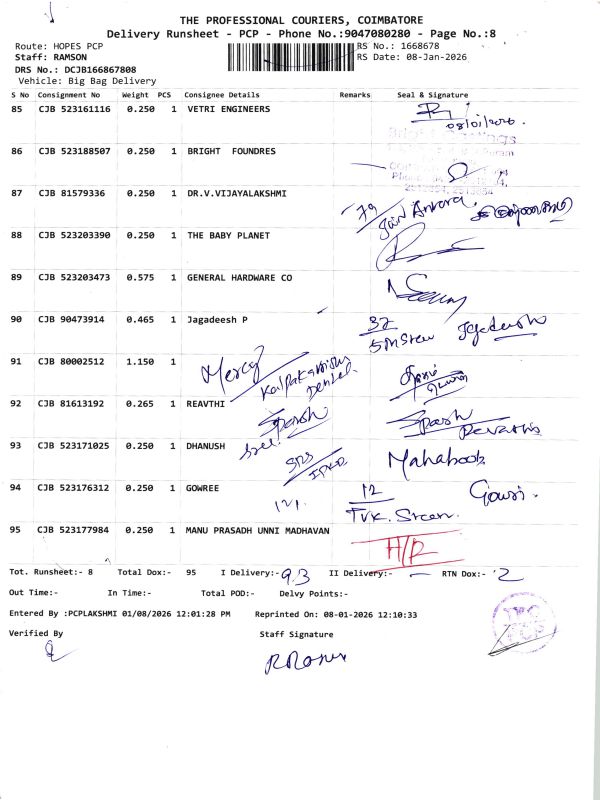 THE PROFESSIONAL COURIERS, COIMBATORE
Delivery Runsheet - PCP - Phone No.:9047080280 - Page No.:8
Route: HOPES PCP
RS No.: 1668678
Staff: RAMSON
RS Date: 08-Jan-2026
DRS No.: DCJB166867808
Vehicle: Big Bag Delivery
S No Consignment No Weight PCS Consignee Details Remarks Seal & Signature
85 CJB 523161116 0.250 1 VETRI ENGINEERS
08/01/2026.
86 CJB 523188507 0.250 1 BRIGHT FOUNDRES
87 CJB 81579336 0.250 1 DR.V.VIJAYALAKSHMI
79
88 CJB 523203390 0.250 1 THE BABY PLANET
89 CJB 523203473 0.575 1 GENERAL HARDWARE CO
90 CJB 90473914 0.465 1 Jagadeesh P
32
91 CJB 80002512 1.150 1
Mercy
Dental
92 CJB 81613192 0.265 1 REAVTHI
Sparsh
Revathi
93 CJB 523171025 0.250 1 DHANUSH
Mahaboob
94 CJB 523176312 0.250 1 GOWREE
121.
12
Gowri.
TVK. Street.
95 CJB 523177984 0.250 1 MANU PRASADH UNNI MADHAVAN
H/R
Tot. Runsheet:- 8 Total Dox:- 95 I Delivery:- 93 II Delivery:- — RTN Dox:- 2
Out Time:- In Time:- Total POD:- Delvy Points:-
Entered By :PCPLAKSHMI 01/08/2026 12:01:28 PM Reprinted On: 08-01-2026 12:10:33
Verified By Staff Signature